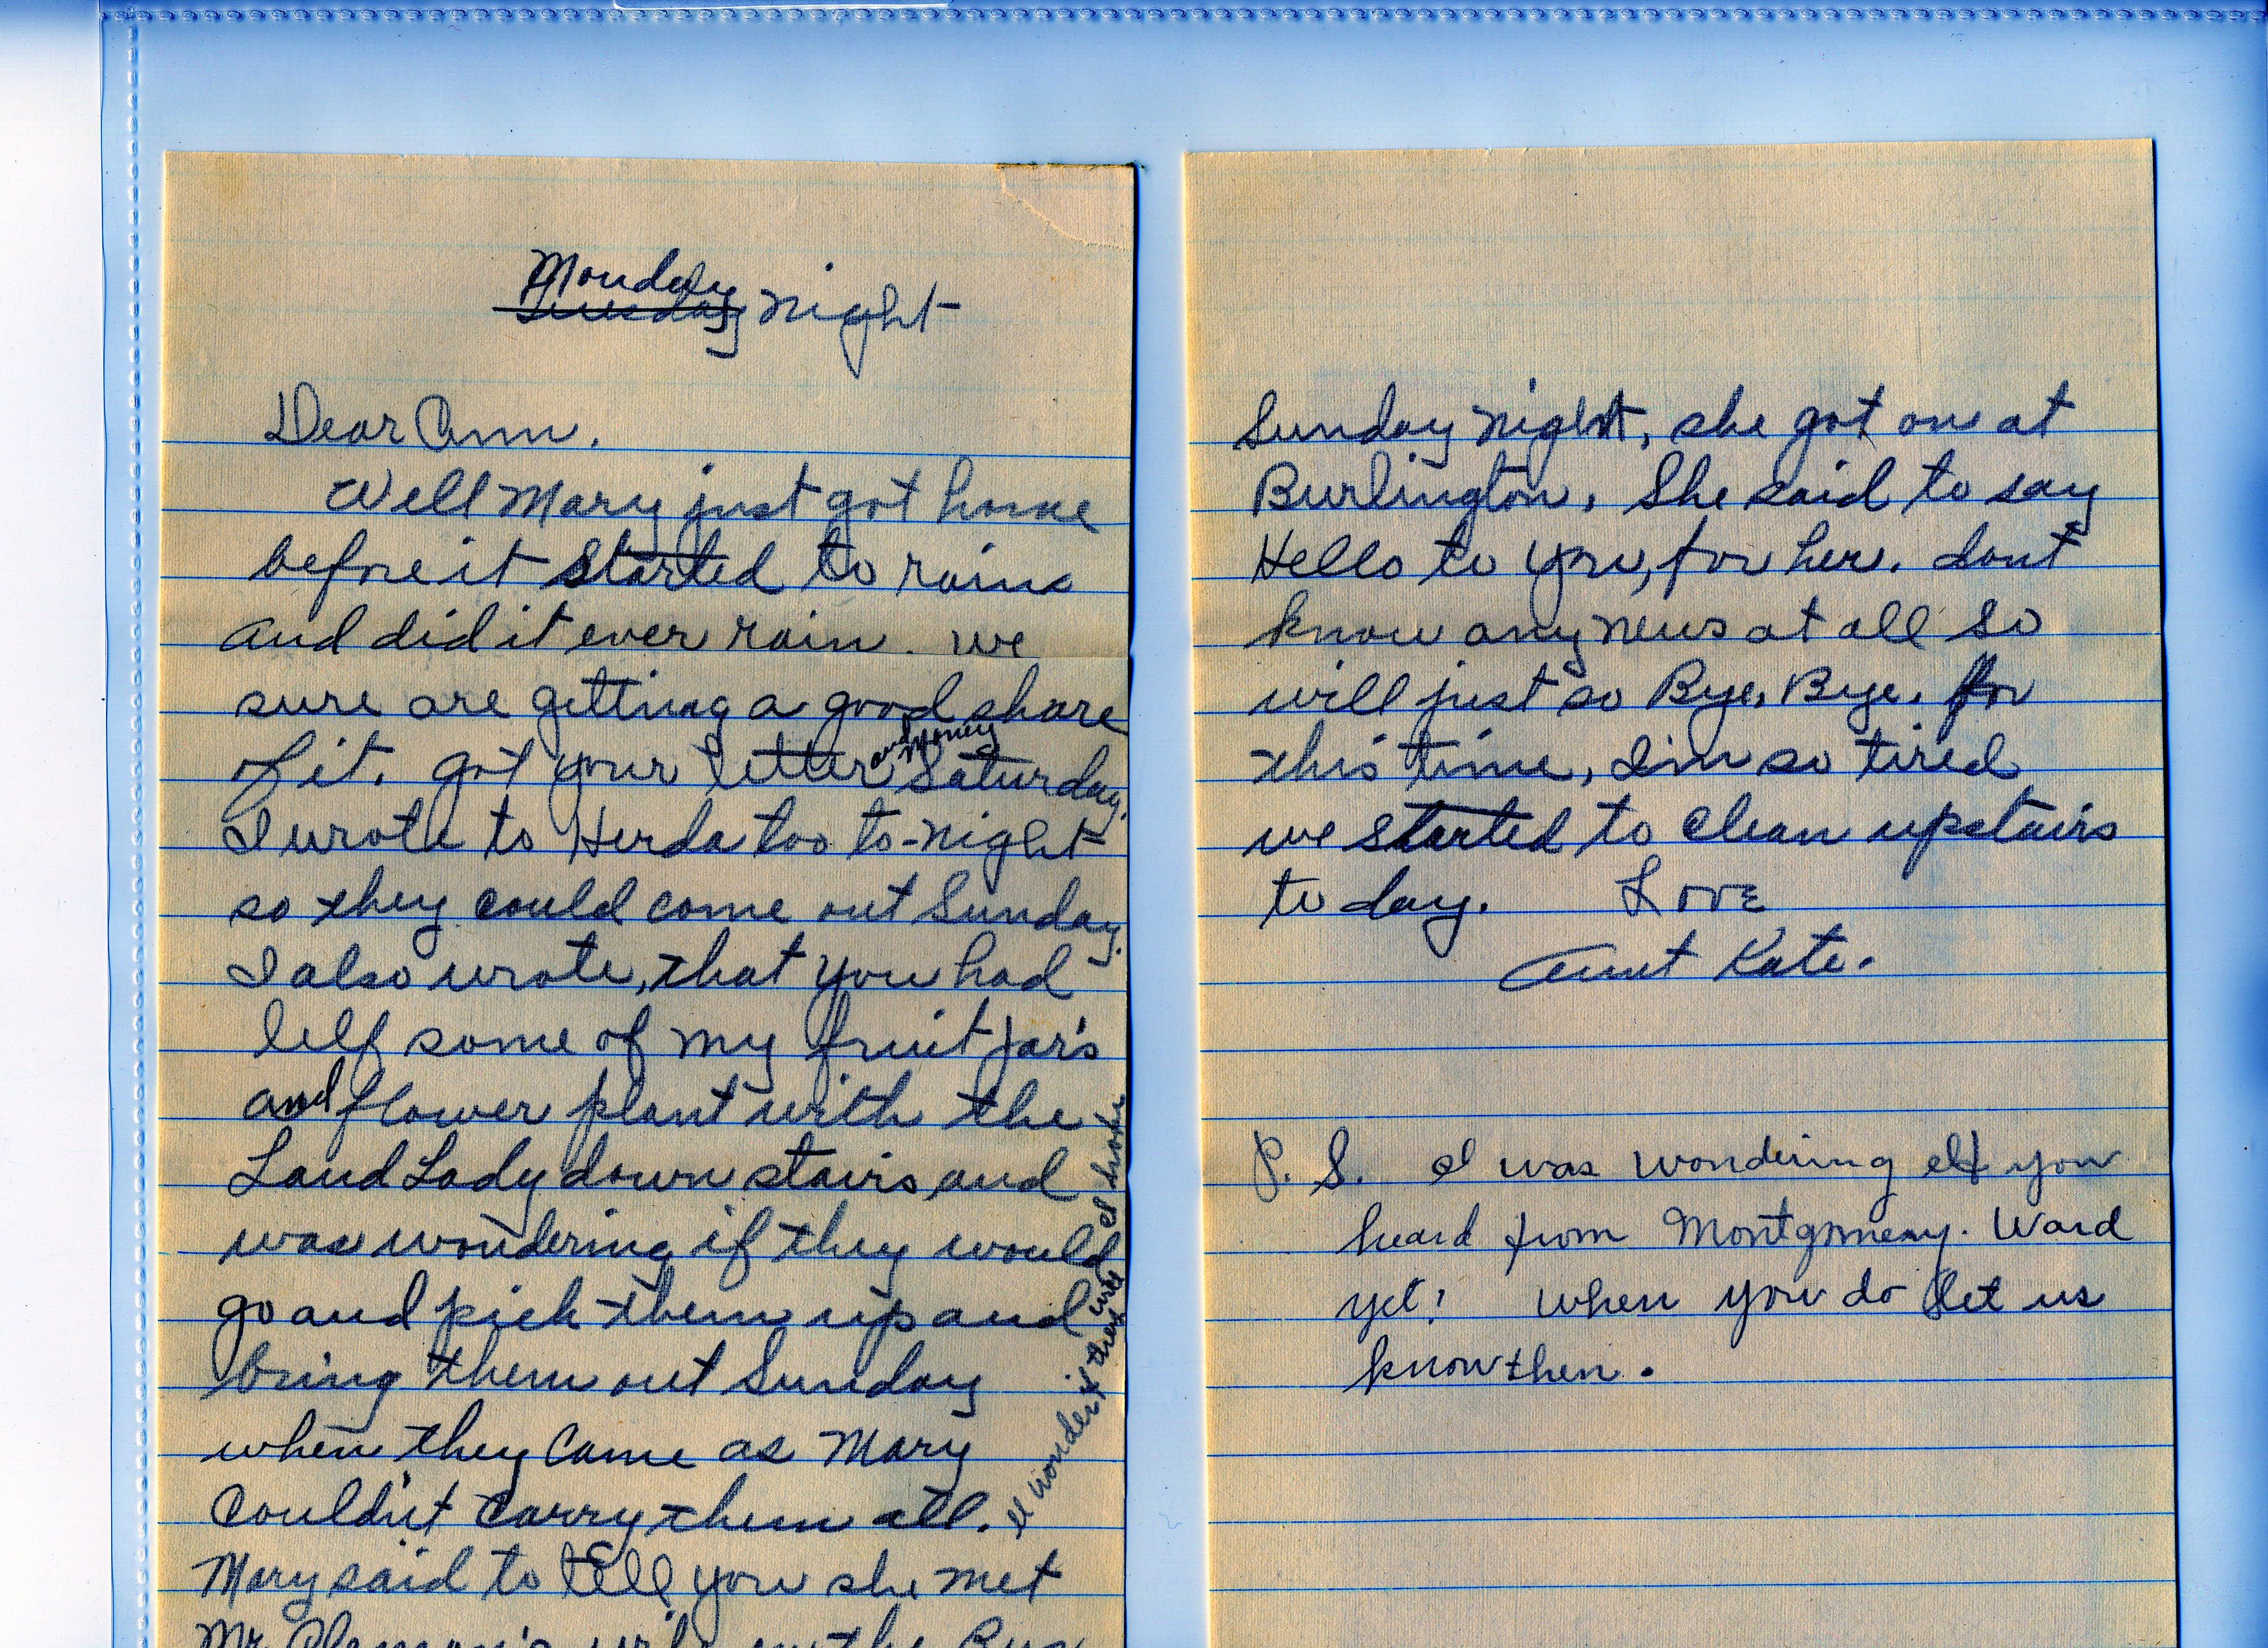 Monday
Tuesday night
Dear Ann.
Well Mary just got home
before it started to rain
and did it ever rain. we
sure are getting a good share
and money
of it. got your letter Saturday.
I wrote to Herda too to-night
so they could come out Sunday.
I also wrote, that you had
lelf some of my fruit Jar's
and flower plant with the
Land Lady down stairs and
was wondering if they would
go and pick them up and
bring them out Sunday
when they came as Mary
Couldn't Carry them all.
I wonder if they will
Mary said to tell you she met
Mr Clemon's wife on the Bus
Sunday night, she got on at
Burlington. She said to say
Hello to you, for her. dont
know any news at all so
will just so Bye, Bye. for
this time, I'm so tired
we started to clean upstairs
to day. Love
Aunt Kate.
P. S. I was wondering if you
heard from Montgomery. Ward
yet! when you do let us
know then.